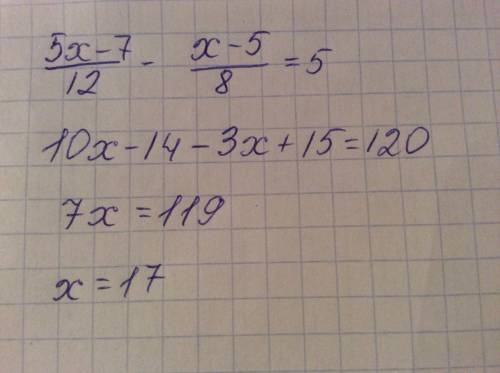 (5x-7)/12 - (x-5)/8 = 5
10x-14-3x+15=120
7x=119
x=17